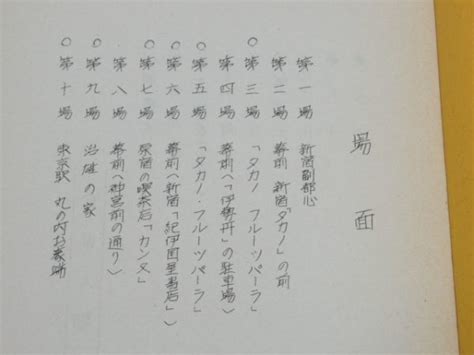 場面
第一場 新宿副都心
第二場 幕前 新宿「タカノ」の前
○第三場 「タカノ フルーツパーラ」
第四場 幕前〈「伊勢丹」の駐車場〉
○第五場 「タカノ・フルーツパーラ」
○第六場 幕前〈新宿「紀伊国屋書店」〉
○第七場 原宿の喫茶店「カンヌ」
第八場 幕前〈神宮前の通り〉
○第九場 治雄の家
○第十場 東京駅 丸の内お濠端